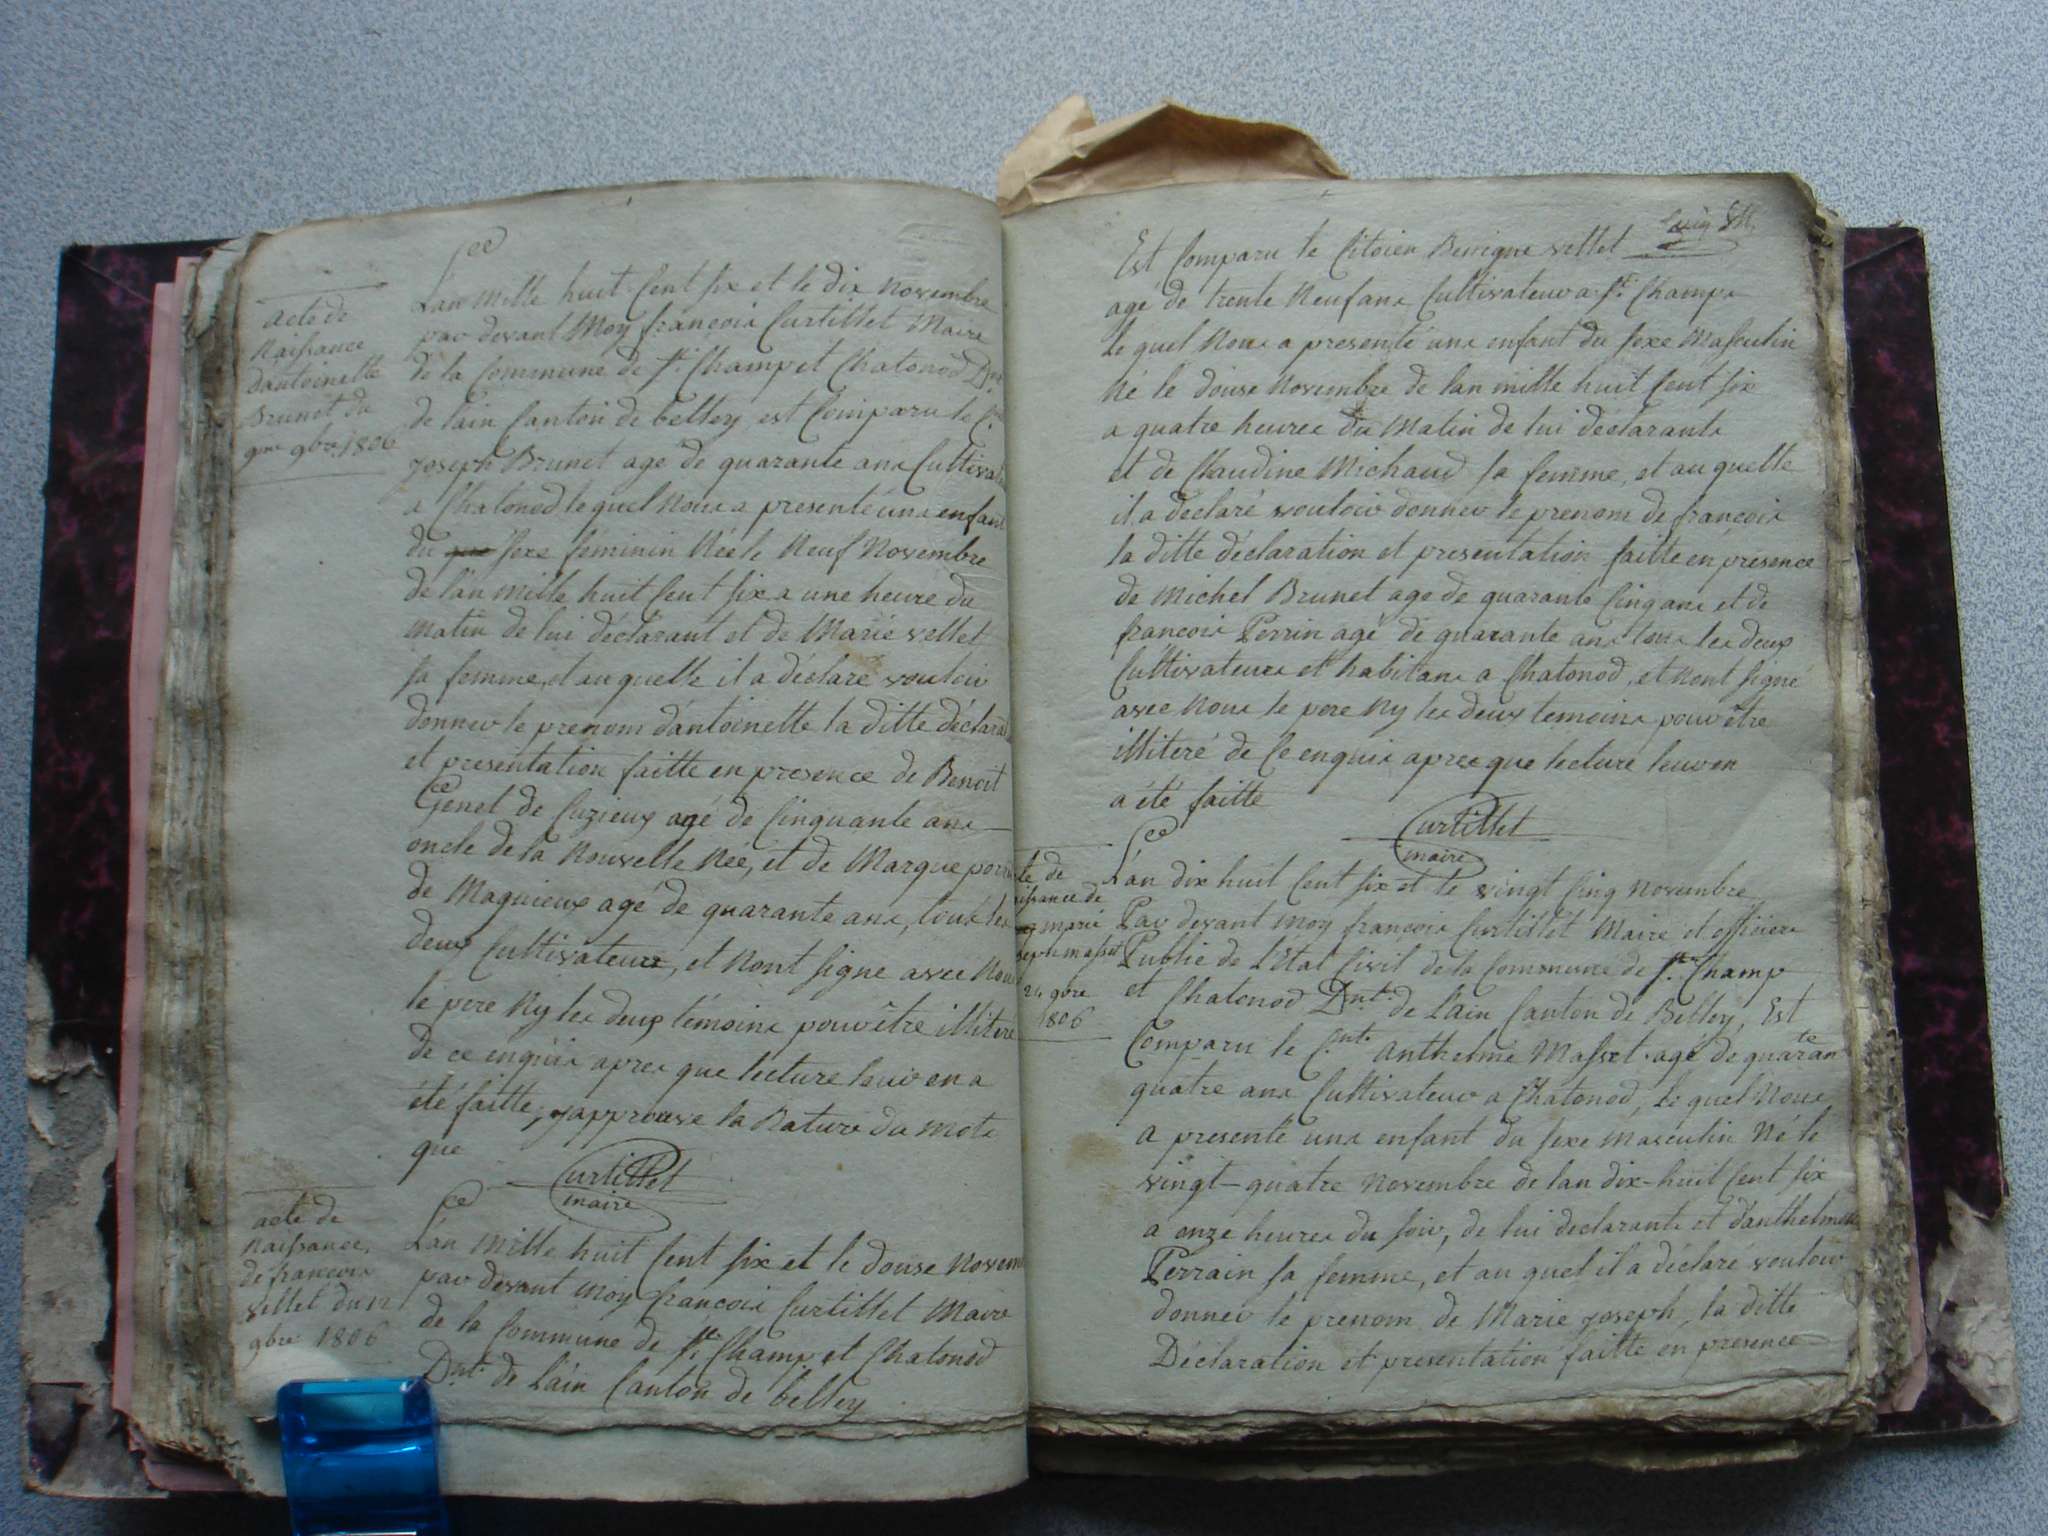 acte de
Naissance
d'antoinette
Brunet du
9me 9bre 1806
L'an Mille huit Cent six et le dix Novembre
par devant Moy françois Curtillet Maire
de la Commune de St. Champ et Chatonod Dnt.
de l'ain Canton de belley, est Comparu le Cnt.
joseph Brunet agé de quarante ans Cultivat
a Chatonod le quel Nous a presenté une enfant
du sexe féminin Née le Neuf Novembre
de l'an Mille huit Cent six a une heure du
Matin de lui déclarant et de Marie vellet
sa femme, et au quelle il a déclaré vouloir
donner le prenom d'antoinette la ditte déclarat
et presentation faitte en presence de Benoit
Genet de Cuzieux agé de Cinquante ans
oncle de la Nouvelle Née, et de Marque
de Magnieux agé de quarante ans, tous les
deux Cultivateurs, et Nont signe avec Nous
le pere Ny les deux témoins pour être illiteré
de ce enquis apres que lecture leur en a
été faitte, japprouve la Rature du mots
que
Curtillet
maire
acte de
Naissance
de françois
vellet du 12
9bre 1806
L'an Mille huit Cent six et le douse Novem
par devant Moy françois Curtillet Maire
de la Commune de St. Champ et Chatonod
Dnt. de l'ain Canton de belley
Est Comparu le Citoien Benigne vellet
agé de trente Neuf ans Cultivateur a St. Champ
Le quel Nous a presenté une enfant du sexe Masculin
Né le douse Novembre de lan mille huit Cent six
a quatre heures du Matin de lui déclarante
et de Claudine Michaud sa femme, et au quelle
il a déclaré vouloir donner le prenom de françois
la ditte déclaration et presentation faitte en presence
de Michel Brunet age de quarante Cinq ans et de
francois Perrin agé de quarante ans tous les deux
Cultivateurs et habitans a Chatonod, et Nont signé
avec Nous le pere Ny les deux temoins pour être
illiteré de Ce enquis apres que lecture leur en
a été faitte
Curtillet
maire
te de
issance de
marie
seph masset
24 9bre
1806
L'an dix huit Cent six et le vingt Cinq Novembre
Par devant Moy françois Curtillet Maire et officiers
Public de l'Etat Civil de la Commune de St. Champ
et Chatonod Dnt. de Lain Canton de Belley, Est
Comparu le Cnt. Anthelme Masset agé de quarante
quatre ans Cultivateur a Chatonod, Le quel Nous
a presenté une enfant du sexe masculin Né le
vingt-quatre Novembre de lan dix-huit Cent six
a onze heures du soir, de lui declarante et d'anthelmene
Perrain sa femme, et au quel il a déclaré vouloir
donner le prenom de Marie joseph, la ditte
Déclaration et presentation faitte en presence